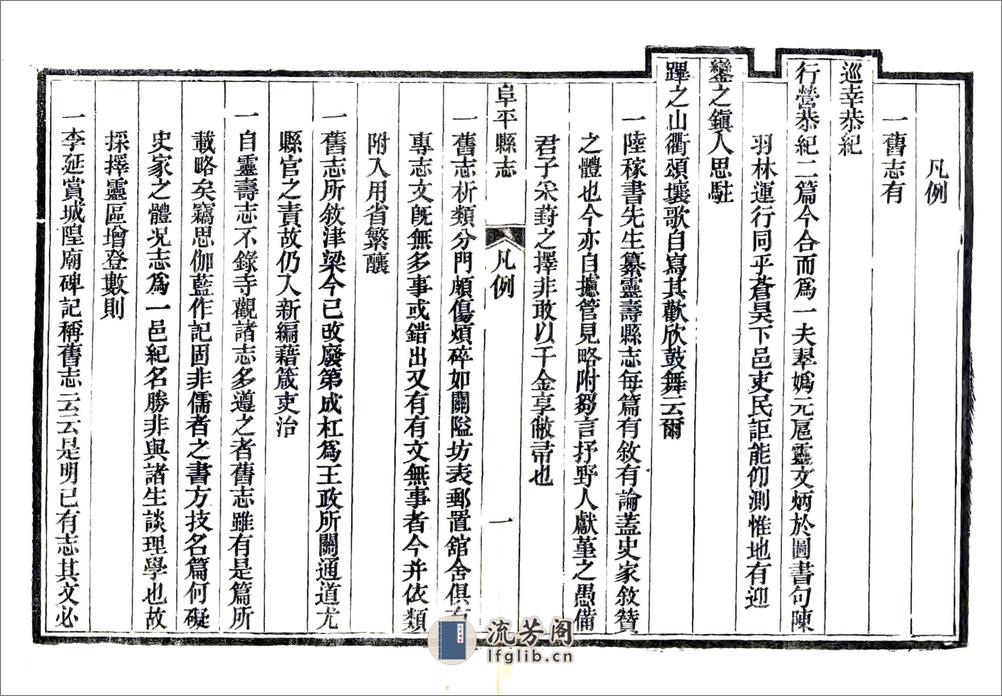 凡例
一舊志有
巡幸恭紀
行營恭紀二篇今合而爲一夫翠嬀元扈靈文炳於圖書句陳
羽林運行同乎蒼昊下邑吏民詎能仰測惟地有迎
鑾之鎭人思駐
蹕之山衢頌壤歌自寫其歡欣鼓舞云爾
一陸稼書先生纂靈壽縣志每篇有敘有論蓋史家敘贊
之體也今亦自攄管見略附芻言抒野人獻堇之愚備
君子采葑之擇非敢以千金享敝帚也
阜平縣志 凡例 一
一舊志析類分門頗傷煩碎如關隘坊表郵置舘舍俱有
專志文旣無多事或錯出又有有文無事者今并依類
附入用省繁釀
一舊志所敘津梁今已改廢第成杠爲王政所關通道尤
縣官之責故仍入新編藉箴吏治
一自靈壽志不錄寺觀諸志多遵之者舊志雖有是篇所
載略矣竊思伽藍作記固非儒者之書方技名篇何礙
史家之體况志爲一邑紀名勝非與諸生談理學也故
採擇靈區增登數則
一李延賞城隍廟碑記稱舊志云云是明已有志其文必
流芳阁
lfglib.cn